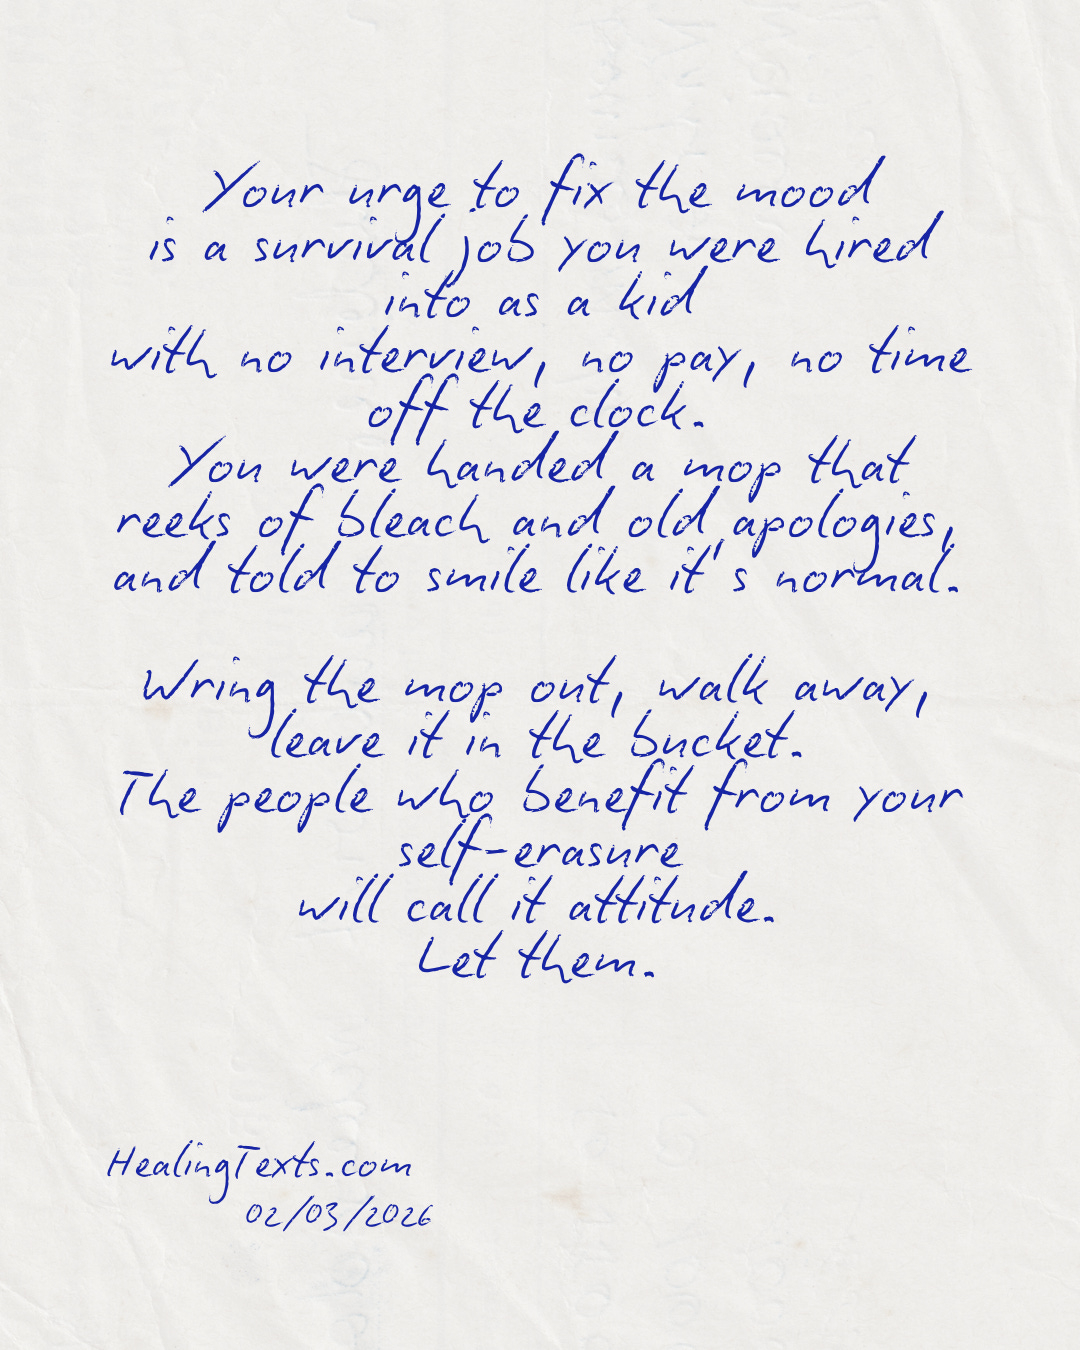 Your urge to fix the mood
is a survival job you were hired
into as a kid
with no interview, no pay, no time
off the clock.
You were handed a mop that
reeks of bleach and old apologies,
and told to smile like it's normal.
Wring the mop out, walk away,
leave it in the bucket.
The people who benefit from your
self-erasure
will call it attitude.
Let them.
HealingTexts.com
02/03/2026